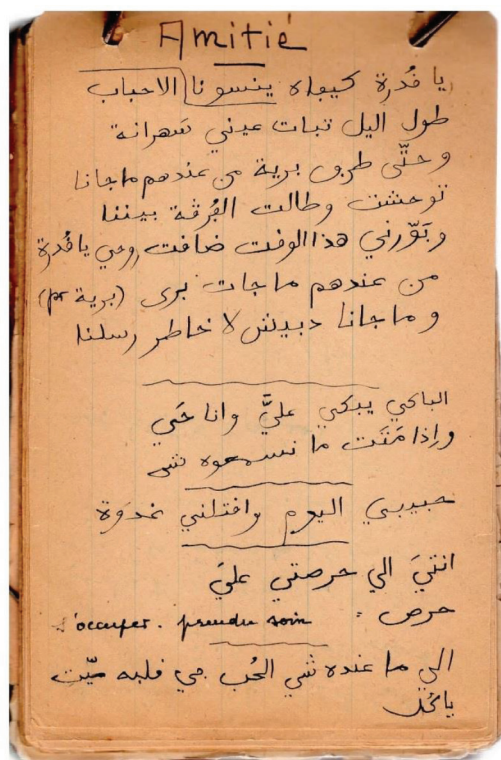 Amitié
يا قُدرة كيفاه ينسونا الاحباب
طول اليل تبات عيني سَهرانة
وحتَّى طرف برية من عندهم ما جانا
توحشت وطالت الفُرقة بيننا
وبَوّرني هذا الوقت ضاقت روحي يا قُدرة
من عندهم ما جات برى (برية pr)
وما جانا دبيش لا خاطر رسلنا
الباكي يبكي عليَّ وانا حَي
وإذا مَتَت ما نسمعوه شي
حبيبي اليوم واقتلني غدوة
انتيَ الي حرصتي عليَّ
حرص : s'occuper. prendre soin
الي ما عنده شي الحُب في قلبه ميّت